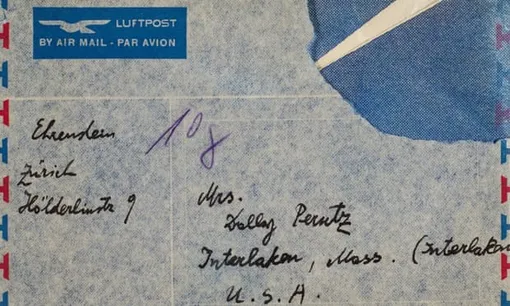 LUFTPOST
BY AIR MAIL - PAR AVION
Ehrenstein
Zürich
Hölderlinstr 9
10g
Mrs.
Dolly Perutz
Interlaken, Mass. (Interlaken
U.S.A.